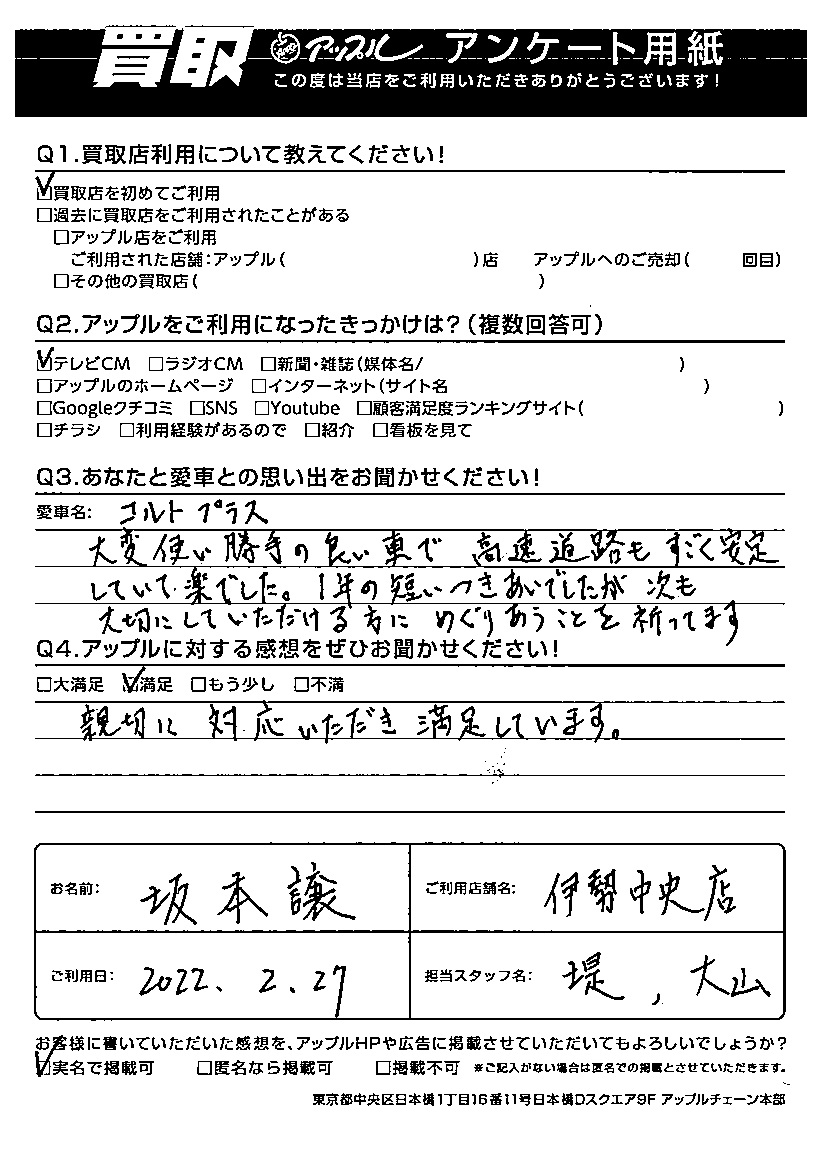 買取 アップル アンケート用紙
この度は当店をご利用いただきありがとうございます!
Q1.買取店利用について教えてください!
☑買取店を初めてご利用
□過去に買取店をご利用されたことがある
□アップル店をご利用
ご利用された店舗:アップル( )店 アップルへのご売却( 回目)
□その他の買取店( )
Q2.アップルをご利用になったきっかけは?(複数回答可)
☑テレビCM □ラジオCM □新聞・雑誌(媒体名/ )
□アップルのホームページ □インターネット(サイト名 )
□Googleクチコミ □SNS □Youtube □顧客満足度ランキングサイト( )
□チラシ □利用経験があるので □紹介 □看板を見て
Q3.あなたと愛車との思い出をお聞かせください!
愛車名: コルト プラス
大変使い勝手の良い車で 高速道路もすごく安定
していて楽でした。1年の短いつきあいでしたが 次も
大切にしていただける方に めぐりあうことを祈ってます
Q4.アップルに対する感想をぜひお聞かせください!
□大満足 ☑満足 □もう少し □不満
親切に 対応いただき 満足しています。
お名前: 坂本 譲 ご利用店舗名: 伊勢中央店
ご利用日: 2022.2.27 担当スタッフ名: 堤,大山
お客様に書いていただいた感想を、アップルHPや広告に掲載させていただいてもよろしいでしょうか?
☑実名で掲載可 □匿名なら掲載可 □掲載不可 ※ご記入がない場合は匿名での掲載とさせていただきます。
東京都中央区日本橋1丁目16番11号日本橋Dスクエア9F アップルチェーン本部